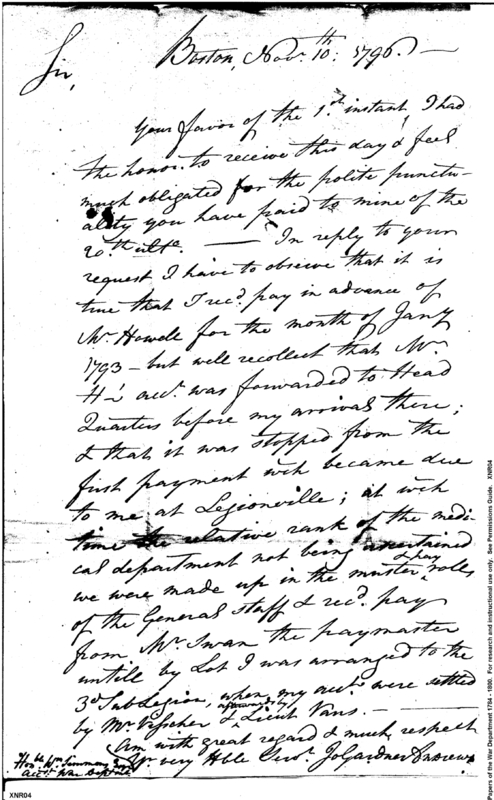 Boston, Nov.r 10th: 1796. —
Sir,
Your favor of the 1.st instant, I had
the honor to receive this day & feel
much obligated for the polite punctu-
ality you have paid to mine of the
20.th ulto. — In reply to your
request I have to observe that it is
true that I rec.d pay in advance of
Mr. Howell for the month of Jany
1793 – but well recollect that Mr.
H–'s acct. was forwarded to Head
Quarters before my arrival there;
& that it was stopped from the
first payment wch became due
to me at Legionville; at wch
time the relative rank of the medi-
cal department not being ascertained
we were made up in the muster & pay rolls
of the General Staff & rec.d pay
from Mr. Swan the paymaster
untill by Lot I was arranged to the
3.d SubLegion, when my accts. were settled
by Mr Visscher & afterwards by Lieut Vans. —
Am with great regard & much respect
Yr. very Hble Serv.t Jo Gardner Andrews
Honble Wm Simmons Esqr
acct. War Dept.
XNR04
Papers of the War Department 1784 - 1800. For research and instructional use only. See Permissions Guide. XNR04